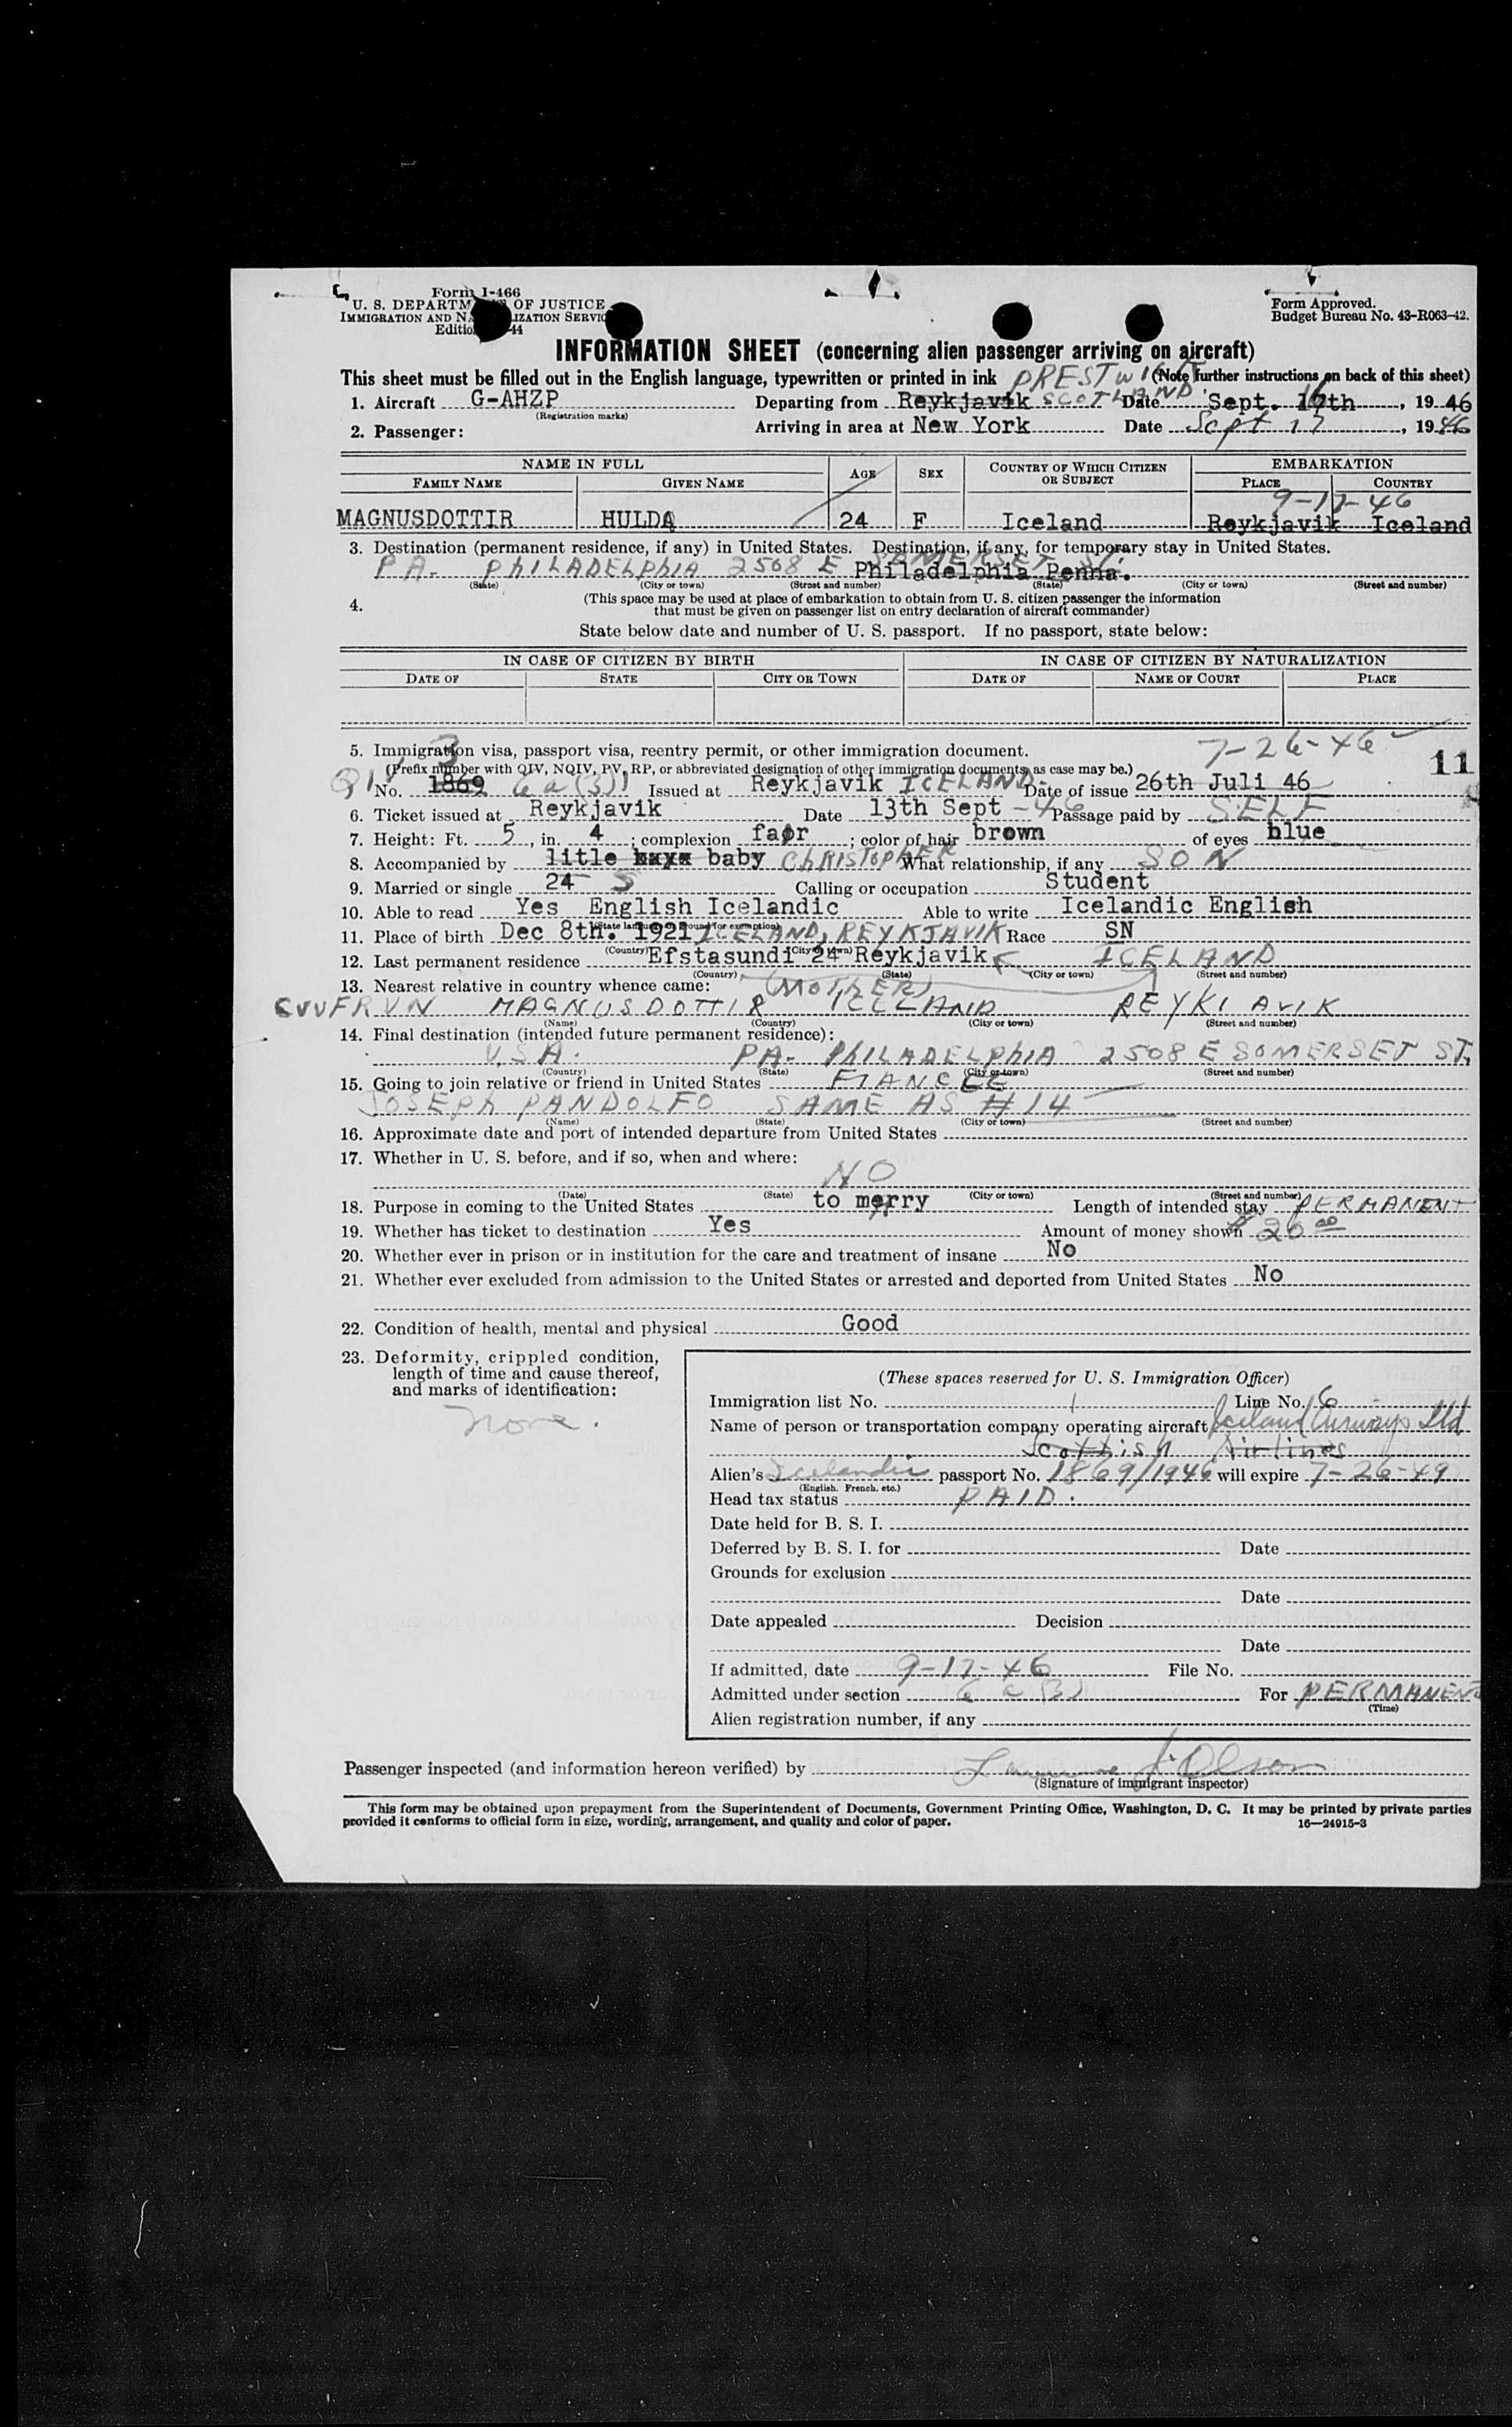 Form I-466
U. S. DEPARTM OF JUSTICE
IMMIGRATION AND N IZATION SERVIC
Editio 44
Form Approved.
Budget Bureau No. 43-R063-42.
INFORMATION SHEET (concerning alien passenger arriving on aircraft)
This sheet must be filled out in the English language, typewritten or printed in ink PRESTWICK (Note further instructions on back of this sheet)
1. Aircraft G-AHZP Departing from Reykjavik SCOTLAND Date Sept. 16th, 19 46
(Registration marks)
2. Passenger: Arriving in area at New York Date Sept 17, 19 46
NAME IN FULL AGE SEX COUNTRY OF WHICH CITIZEN OR SUBJECT EMBARKATION
FAMILY NAME GIVEN NAME PLACE COUNTRY
9-17-46
MAGNUSDOTTIR HULDA 24 F Iceland Reykjavik Iceland
3. Destination (permanent residence, if any) in United States. Destination, if any, for temporary stay in United States.
PA. PHILADELPHIA 2508 E SOMERSET ST. Philadelphia Penna.
(State) (City or town) (Street and number) (State) (City or town) (Street and number)
4. (This space may be used at place of embarkation to obtain from U. S. citizen passenger the information
that must be given on passenger list on entry declaration of aircraft commander)
State below date and number of U. S. passport. If no passport, state below:
IN CASE OF CITIZEN BY BIRTH IN CASE OF CITIZEN BY NATURALIZATION
DATE OF STATE CITY OR TOWN DATE OF NAME OF COURT PLACE
5. Immigration visa, passport visa, reentry permit, or other immigration document. 7-26-46
(Prefix number with QIV, NQIV, PV, RP, or abbreviated designation of other immigration documents as case may be.) 11
QIV 3 No. 1869 6a(3) Issued at Reykjavik ICELAND. Date of issue 26th Juli 46
6. Ticket issued at Reykjavik Date 13th Sept -46 Passage paid by SELF
7. Height: Ft. 5, in. 4; complexion fair; color of hair brown of eyes blue
8. Accompanied by litle baby CHRISTOPHER What relationship, if any SON
9. Married or single 24 S Calling or occupation Student
10. Able to read Yes English Icelandic Able to write Icelandic English
(State language or ground for exemption)
11. Place of birth Dec 8th. 1921 ICELAND, REYKJAVIK Race SN
(Country) (City or town)
12. Last permanent residence Efstasundi 24 Reykjavik ICELAND
(Country) (State) (City or town) (Street and number)
13. Nearest relative in country whence came: (MOTHER)
MAGNUSDOTTIR ICELAND REYKIAVIK
(Name) (Country) (City or town) (Street and number)
14. Final destination (intended future permanent residence):
U.S.A. PA. PHILADELPHIA 2508 E SOMERSET ST.
(Country) (State) (City or town) (Street and number)
15. Going to join relative or friend in United States FIANCEE
JOSEPH PANDOLFO SAME AS #14
(Name) (State) (City or town) (Street and number)
16. Approximate date and port of intended departure from United States
17. Whether in U. S. before, and if so, when and where:
NO
(Date) (State) (City or town) (Street and number)
18. Purpose in coming to the United States to merry Length of intended stay PERMANENT
19. Whether has ticket to destination Yes Amount of money shown $20 00
20. Whether ever in prison or in institution for the care and treatment of insane No
21. Whether ever excluded from admission to the United States or arrested and deported from United States No
22. Condition of health, mental and physical Good
23. Deformity, crippled condition,
length of time and cause thereof,
and marks of identification:
none.
(These spaces reserved for U. S. Immigration Officer)
Immigration list No. 1 Line No. 6
Name of person or transportation company operating aircraft Iceland Airways Ltd
Scottish Airlines
Alien's Icelandic passport No. 1869/1946 will expire 7-26-49
(English, French, etc.)
Head tax status PAID.
Date held for B. S. I.
Deferred by B. S. I. for Date
Grounds for exclusion
Date
Date appealed Decision
Date
If admitted, date 9-17-46 File No.
Admitted under section 6 a (3) For PERMANENT
(Time)
Alien registration number, if any
Passenger inspected (and information hereon verified) by J. Olson
(Signature of immigrant inspector)
This form may be obtained upon prepayment from the Superintendent of Documents, Government Printing Office, Washington, D. C. It may be printed by private parties
provided it conforms to official form in size, wording, arrangement, and quality and color of paper. 16—24915-3